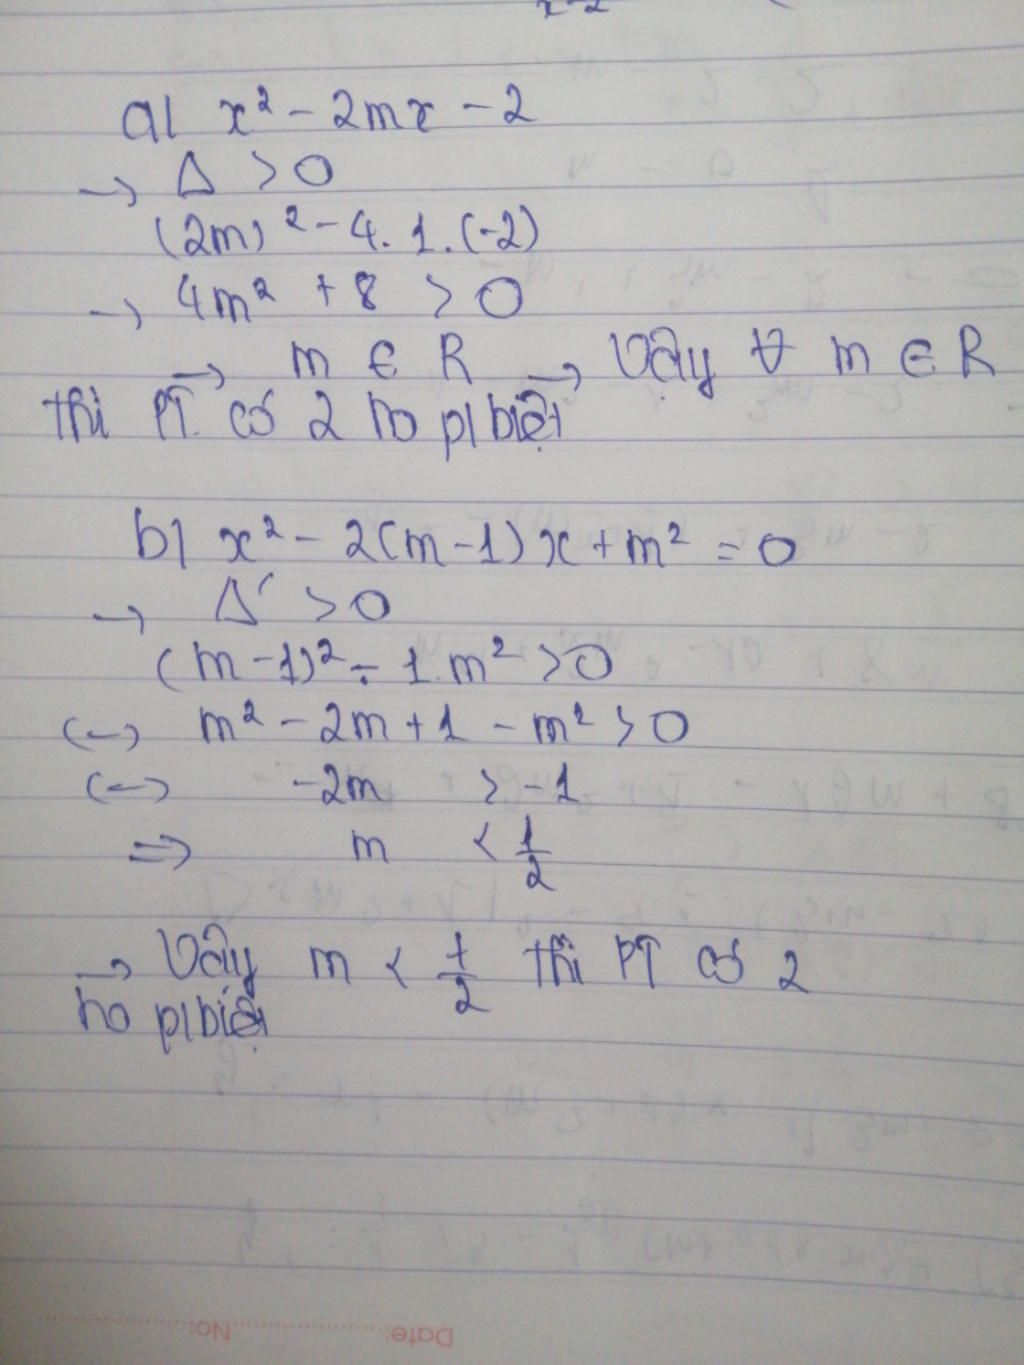 x-2
a) x² - 2mx - 2
→ Δ > 0
(2m)² - 4.1.(-2)
→ 4m² + 8 > 0
→ m ∈ R → Vậy ∀ m ∈ R
thì PT có 2 no pl biệt
b) x² - 2(m-1)x + m² = 0
→ Δ' > 0
(m-1)² - 1.m² > 0
(→) m² - 2m + 1 - m² > 0
(→) -2m > -1
=> m < 1/2
→ Vậy m < 1/2 thì PT có 2
no pl biệt
Date: No: